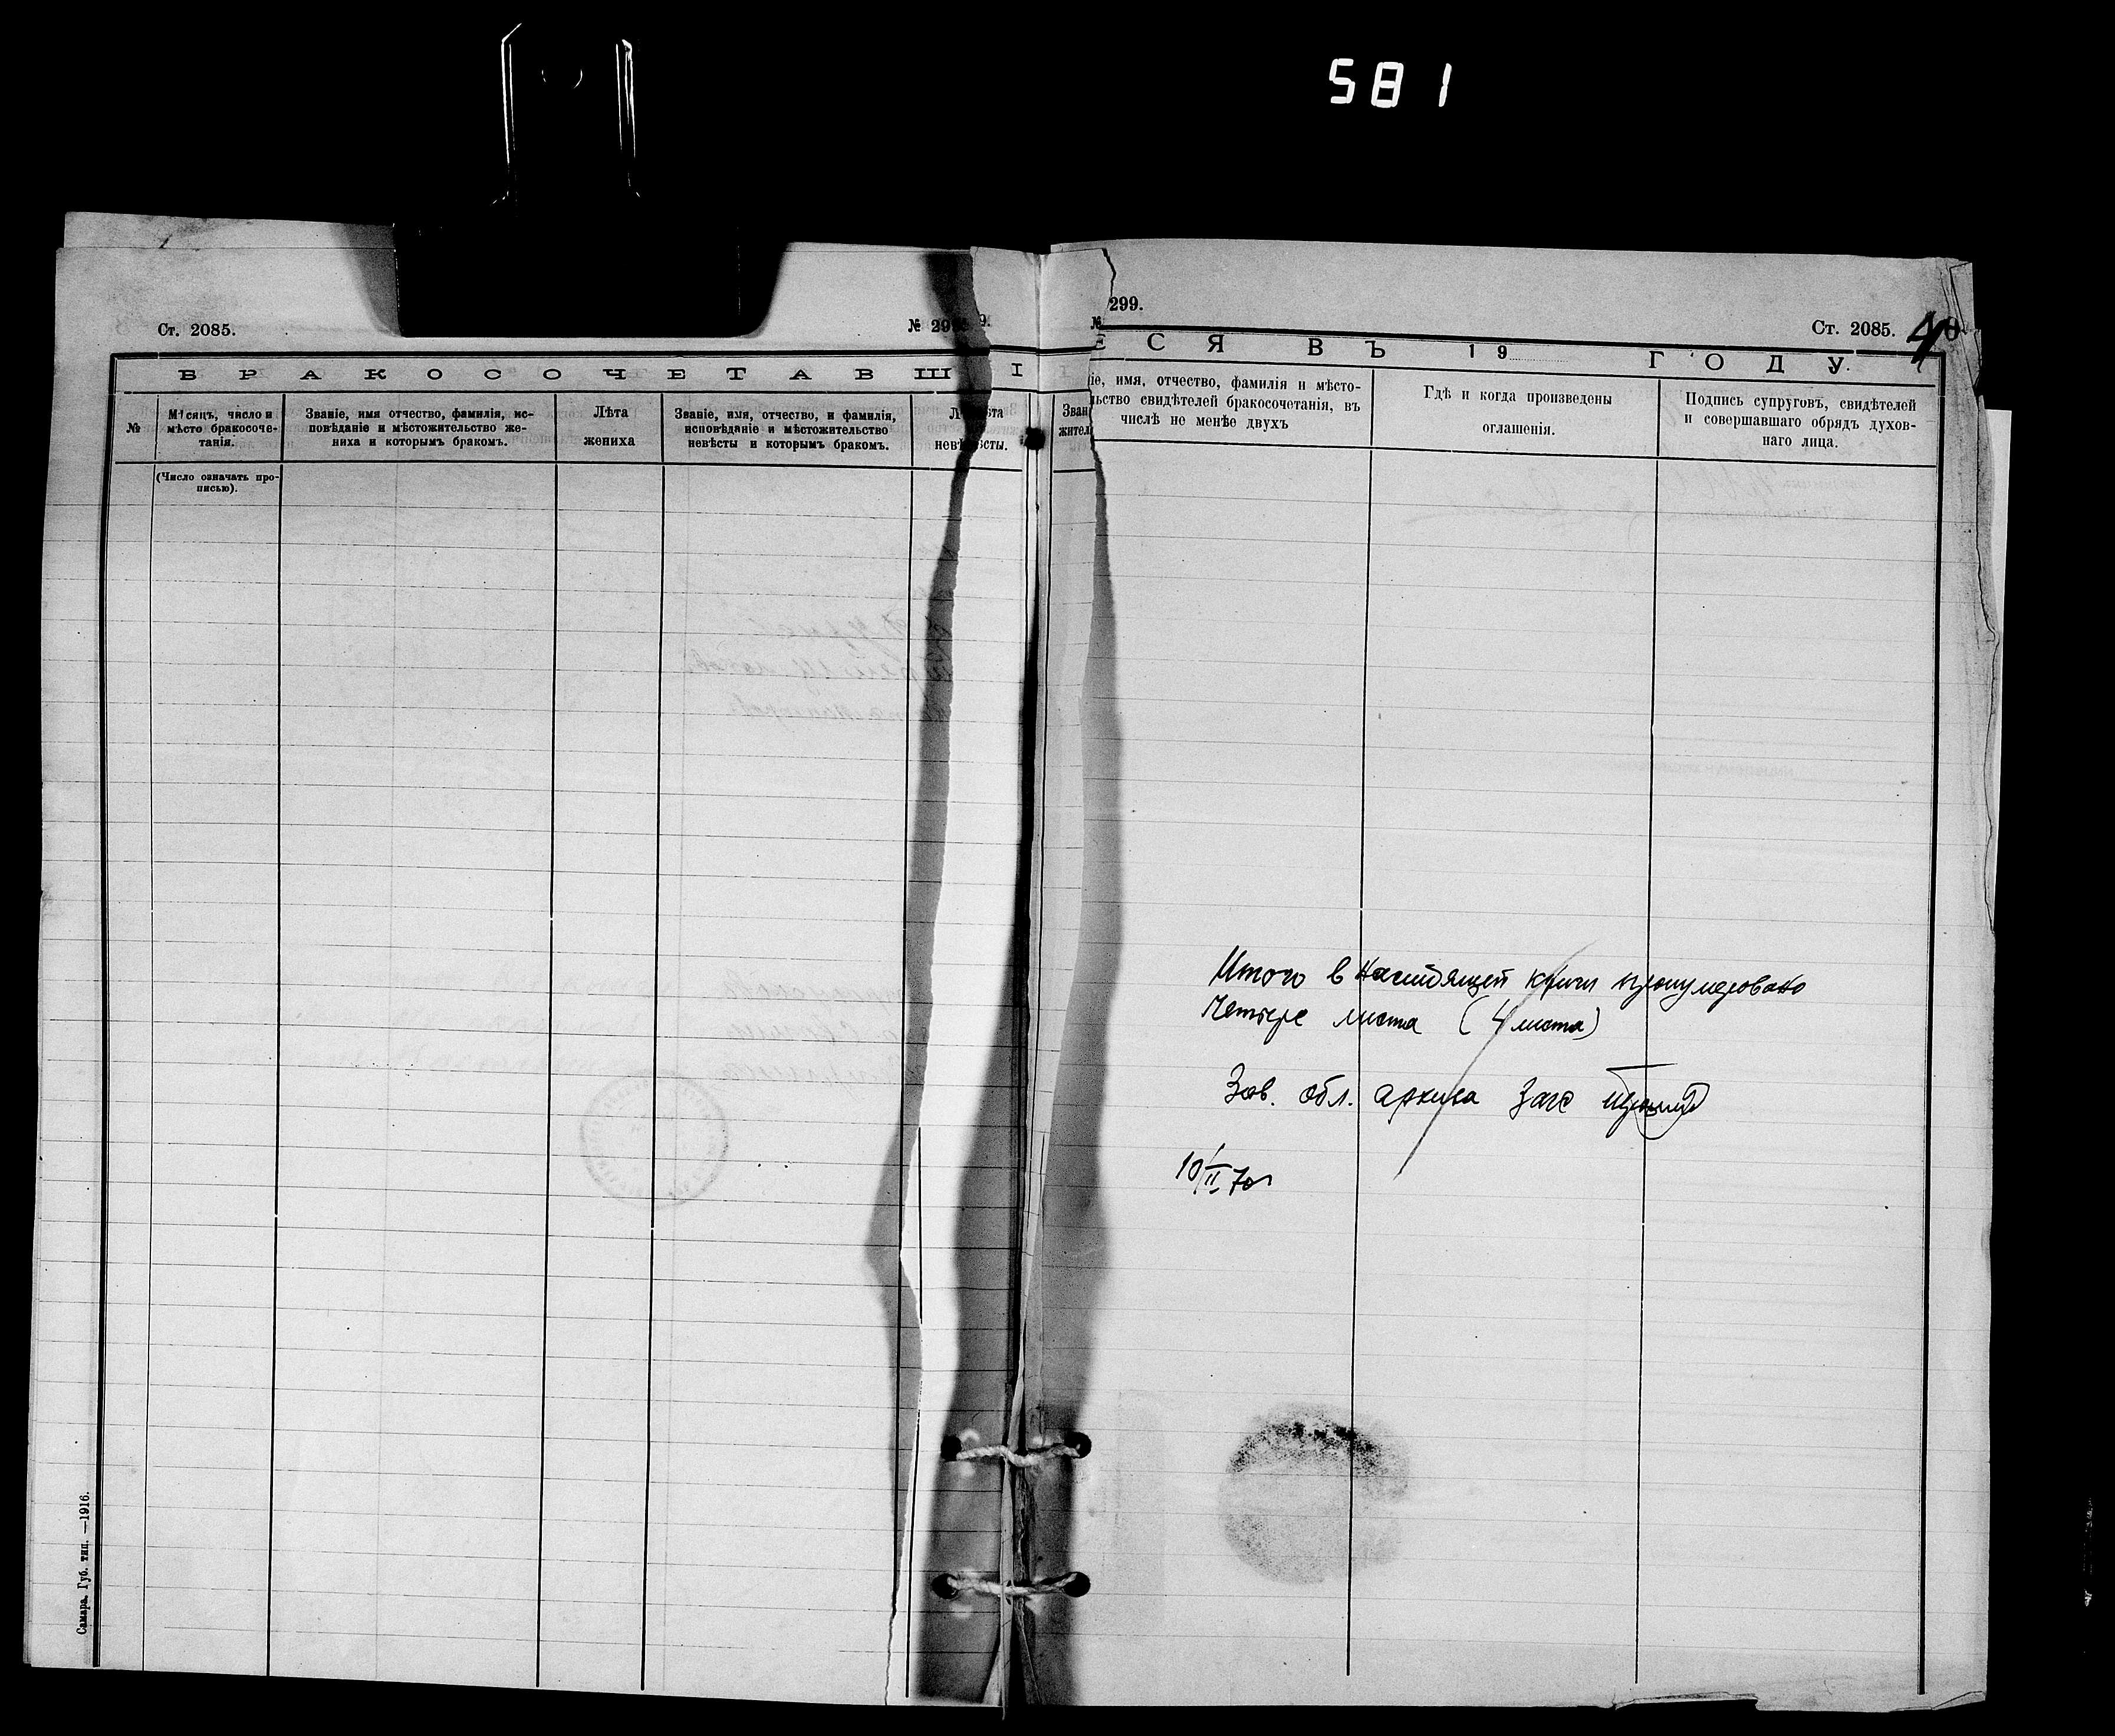 581
Ст. 2085.
№ 299.
БРАКОСОЧЕТАВШІ
№
Мѣсяцъ, число и
мѣсто бракосоче-
танія.
(Число означать про-
писью).
Званіе, имя отчество, фамилія, ис-
повѣданіе и мѣстожительство же-
ниха и которымъ бракомъ.
Лѣта
жениха
Званіе, имя, отчество, и фамилія,
исповѣданіе и мѣстожительство
невѣсты и которымъ бракомъ.
Лѣта
невѣсты.
Самара, Губ. тип. —1916.
299.
Ст. 2085.
4
ЕСЯ ВЪ 19 ГОДУ.
іе, имя, отчество, фамилія и мѣсто-
льство свидѣтелей бракосочетанія, въ
числѣ не менѣе двухъ
Гдѣ и когда произведены
оглашенія.
Подпись супруговъ, свидѣтелей
и совершавшаго обрядъ духов-
наго лица.
Итого в настоящей книги пронумеровано
четыре листа (4 листа)
Зав. обл. архива Загс
10/II 70г